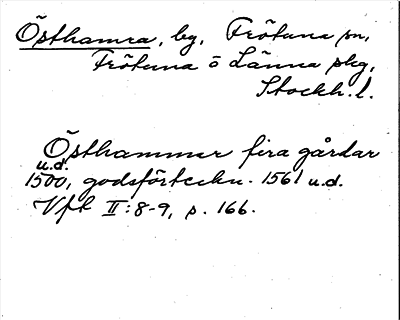 Östhamra, by, Frötuna sn,
Frötuna o Länna skg,
Stockh. l.
Östhammer fira gårdar
u.d.
1500, godsförteckn. 1561 u.d.
Vfl II:8-9, s. 166.